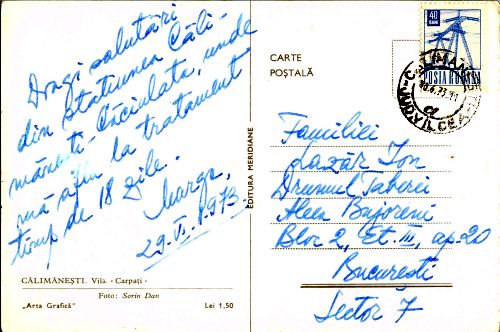 Dragi salutări
din Stațiunea Căli-
mănești-Căciulata, unde
mă aflu la tratament
timp de 18 zile.
Marga,
29.VI.1973
CĂLIMĂNEȘTI. Vila «Carpați»
Foto: Sorin Dan
„Arta Grafică”
Lei 1,50
EDITURA MERIDIANE
CARTE
POȘTALĂ
40
BANI
POSTA ROMANA
Familiei
Lazăr Ion
Drumul Taberei
Aleea Bujoreni
Bloc 2, Et. III, ap. 20
București
Sector 7